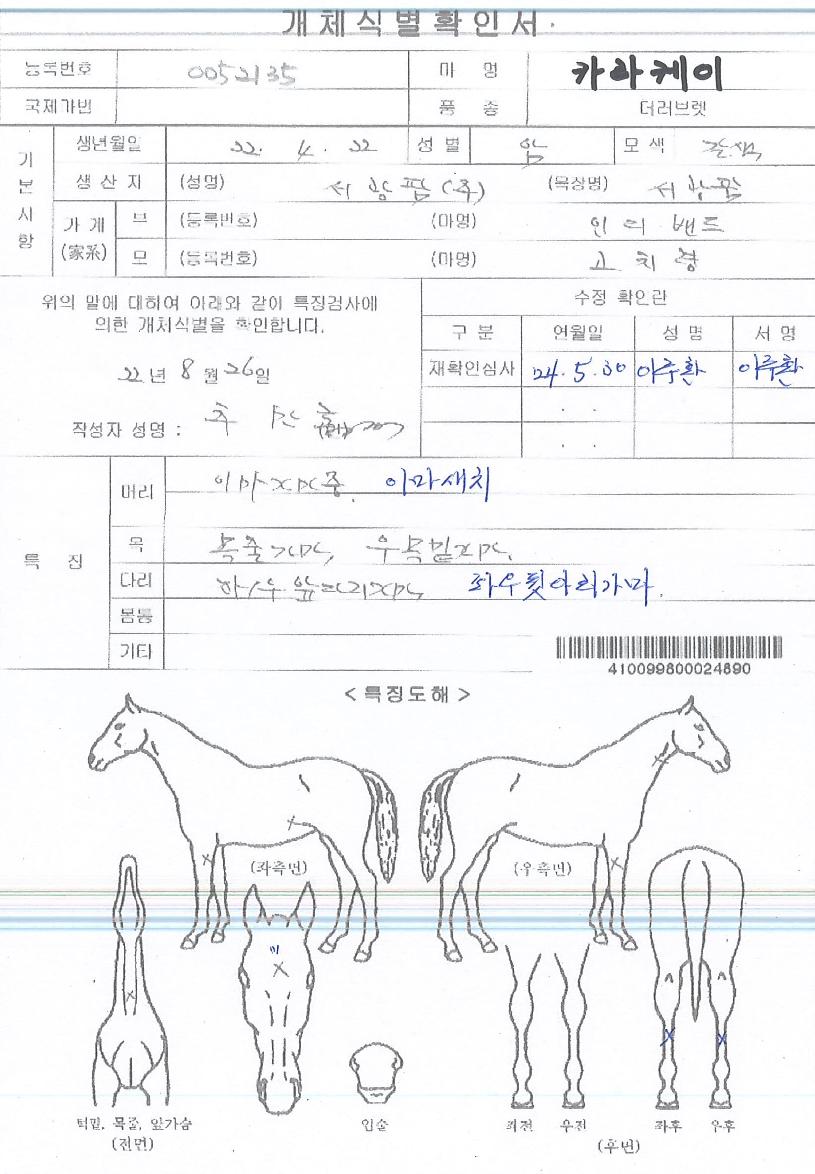 개체식별확인서
등록번호 0052135 마 명 카라케이
국제가번 품 종 더러브렛
기본사항
생년월일 22. 4. 22 성별 암 모색 갈색
생산지 (성명) 서왕팜(주) (목장명) 서왕팜
가계(家系) 부 (등록번호) (마명) 인디밴드
모 (등록번호) (마명)
위의 말에 대하여 이래와 같이 특징검사에
의한 개체식별을 확인합니다.
22년 8월 26일
작성자 성명 :
수정 확인란
구분 연월일 성명 서명
재확인심사 24. 5. 30 이주환 이주환
특징
머리 이마 중. 이마새치
목
다리 좌우뒷다리가마.
몸통
기타
410099800024890
<특징도해>
(좌측면) (우측면)
턱밑, 목줄, 앞가슴
(전면)
입술
좌전 우전 좌후 우후
(후면)